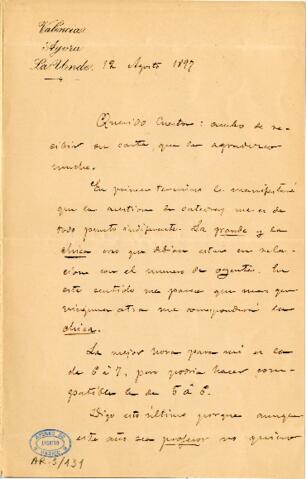 Valencia
Ayora
La Unde. 12 Agosto 1897
Querido Curtor: acabo de re-
cibir su carta que le agradezco
mucho.
En primer termino le manifestaré
que la cuestion de catedras me es de
todo punto indiferente. La grande y la
chica creo que debian estar en rela-
cion con el numero de oyentes. En
este sentido me parece que mas que
ninguna otra me corresponderá la
chica.
La mejor hora para mi es la
de 6 á 7, pero podria hacer com-
patible la de 5 á 6.
Digo esto último porque aunque
este año sea profesor no quiero
AR-3/131